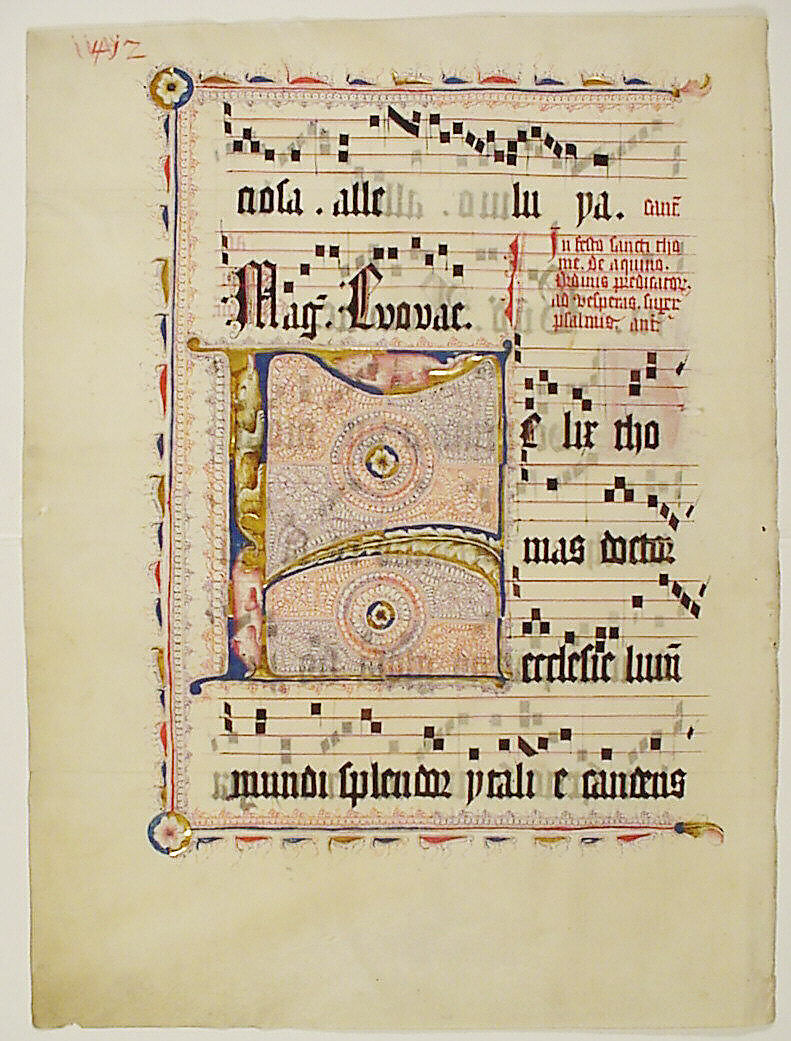 ciosa . alle lu ya. cant̄
In festo sancti tho
me. de aquino.
Ordinis predicator.
ad vesperas. super
psalmis. ant̄
Maḡ. Evovae.
F e lix tho
mas doctor
ecclesie lum̄
mundi splendor ytali e candens